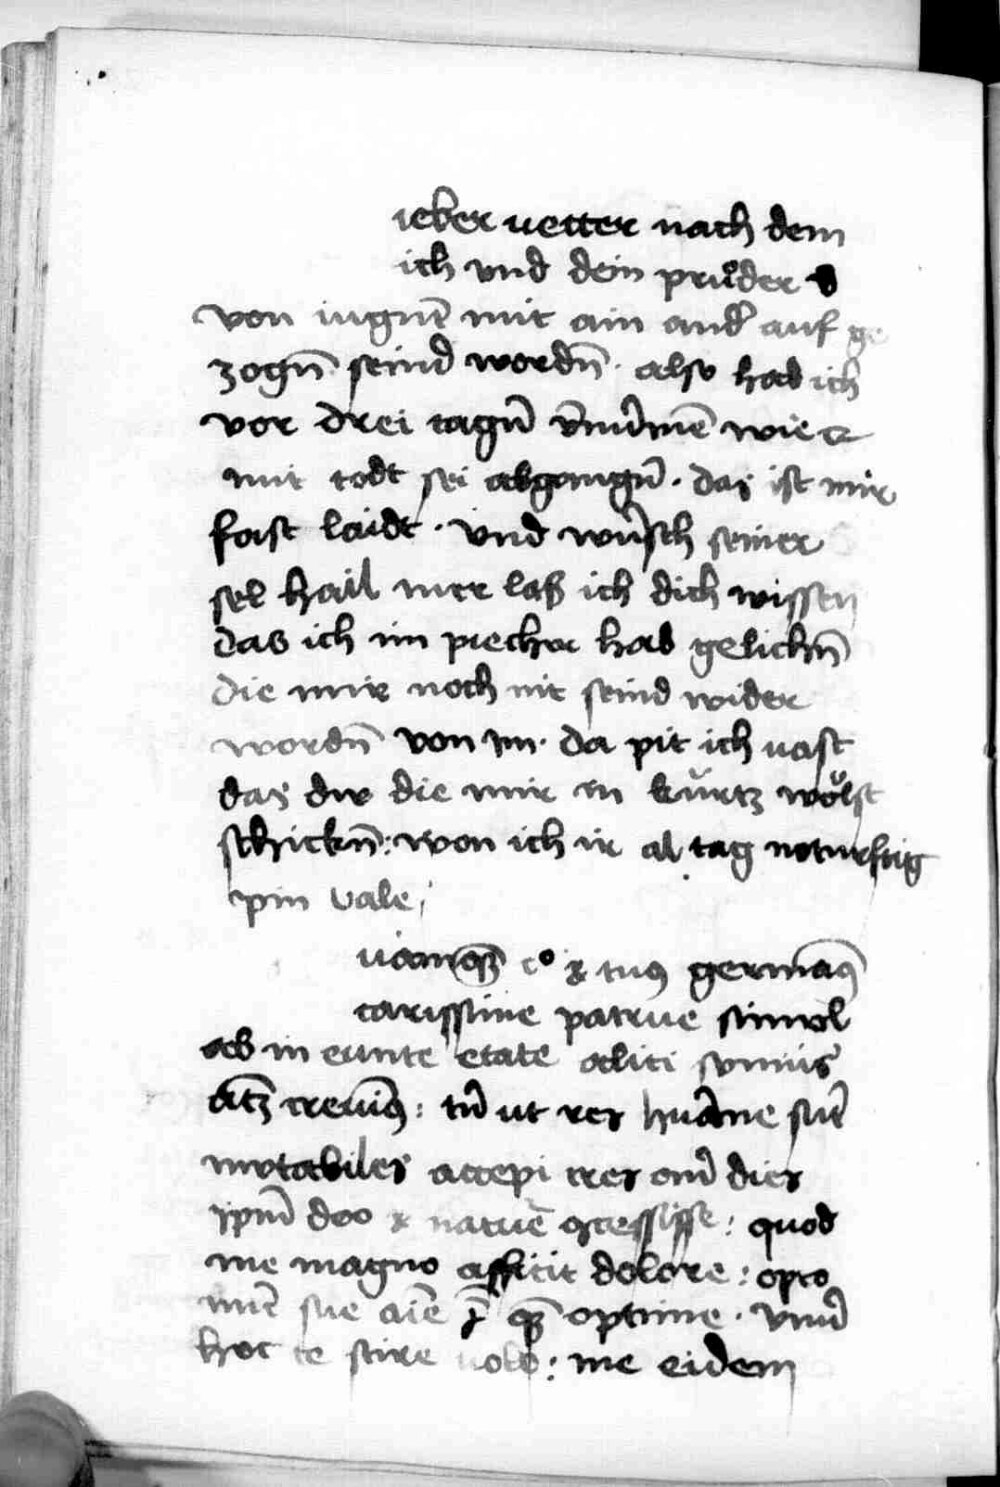 ieber uetter nach dem
ich vnd dein průder
von iugnt mit ain andr̄ auf ge
zogn̄ seind wordn̄ · also hab ich
vor drei tagn̄ v̄nūmē wie er
mit todt sei abgangn̄ · das ist mir
fast laidt · vnd wünsch seiner
sel hail mer laß ich dich wissen
das ich im piecher hab gelichn̄
die mir noch nit seind wider
wordn̄ von im · da pit ich uast
das dw die mir in kürtz wölst
schickn̄ : won ich ir al tag noturftig
pin vale ;
uāmqȝ c° & tuꝯ germāꝯ
carissime patrue simul
ab in eunte etate aliti sumus
atȝ creuimꝯ : tn̄ ut res hūane sūt
mutabiles accepi tres ān̄ dies
ipm̄ deo & nature ↄcessisse : quod
me magno afficit dolore : opto
sue aīe optime · vnū
hoc te scire uolo : me eidem